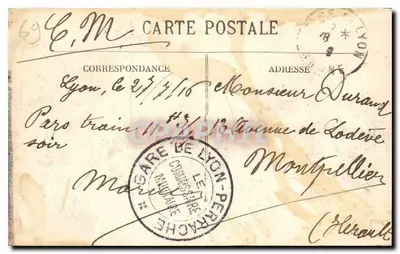 69
C.M.
CARTE POSTALE
CORRESPONDANCE
ADRESSE
LYON
Lyon, le 27/7/16
Pars train
soir
Monsieur Durand
13 Avenue de Lodève
Montpellier
(Hérault)
GARE DE LYON-PERRACHE
LE
COMMISSAIRE
MILITAIRE